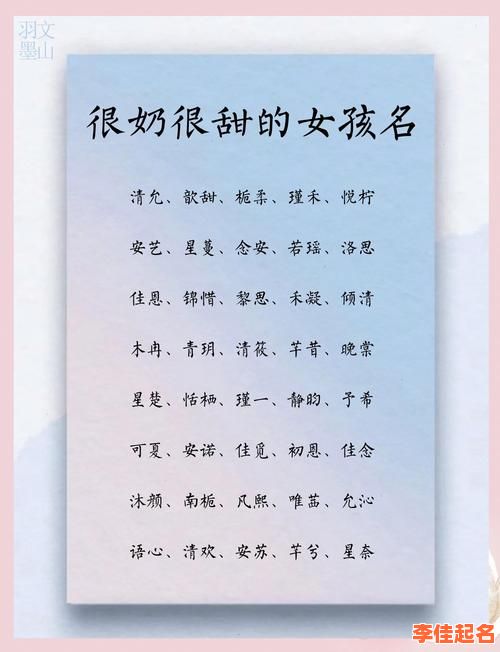 羽文
墨山
很奶很甜的女孩名
清允、歆甜、栀柔、瑾禾、悦柠
安艺、星蔓、念安、若瑶、洛思
佳恩、锦惜、黎思、禾凝、倾清
木冉、青玥、清筱、芊昔、晚棠
星楚、恬栖、瑾一、静昀、予希
可夏、安诺、佳觅、初恩、佳念
沐颜、南栀、凡熙、唯茜、允沁
语心、清欢、安苏、芊兮、星奈
李佳起名